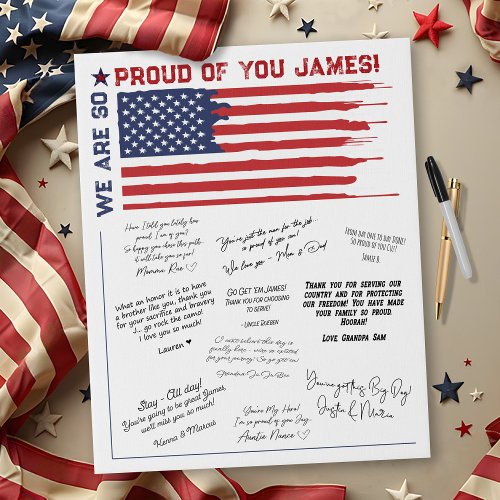 WE ARE SO
PROUD OF YOU JAMES!
Have I told you lately how
proud I am of you?
So happy you chose this path..
it will take you so far!
Momma Rae ♡
You're just the man for the job...
so proud of you son!
We love you - Mom & Dad
From day one to day done!
So proud of you Cuz!
Jamie B.
What an honor it is to have
a brother like you, thank you
for your sacrifice and bravery
J... go rock the camo!
I love you so much!
Lauren ♥
Go Get 'em James!
Thank you for choosing
to serve!
- Uncle Reuben
Thank you for serving our
country and for protecting
our freedom! You have made
your family so proud.
Hoorah!
Love Grandpa Sam
finally here - we're so excited
for your journey! So
Slay - All day!
You're going to be great James,
we'll miss you so much!
Kenna & Marcus
You're My Hero!
I'm so proud of you Jay.
Auntie Nance ♡
You've got this Big Dog!
Justin & Maria